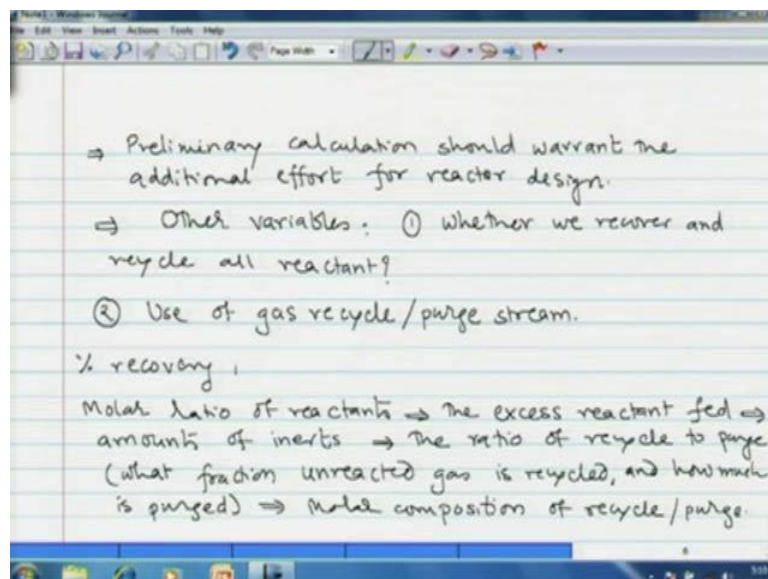 Note1 - Windows Journal
File Edit View Insert Actions Tools Help
Page Width
⇒ Preliminary calculation should warrant the
additional effort for reactor design.
⇒ Other variables: ① Whether we recover and
recycle all reactant?
② Use of gas recycle/purge stream.
% recovery,
Molar ratio of reactants ⇒ The excess reactant fed ⇒
amounts of inerts → The ratio of recycle to purge
(what fraction unreacted gas is recycled, and how much
is purged) ⇒ Molar composition of recycle/purge.
6